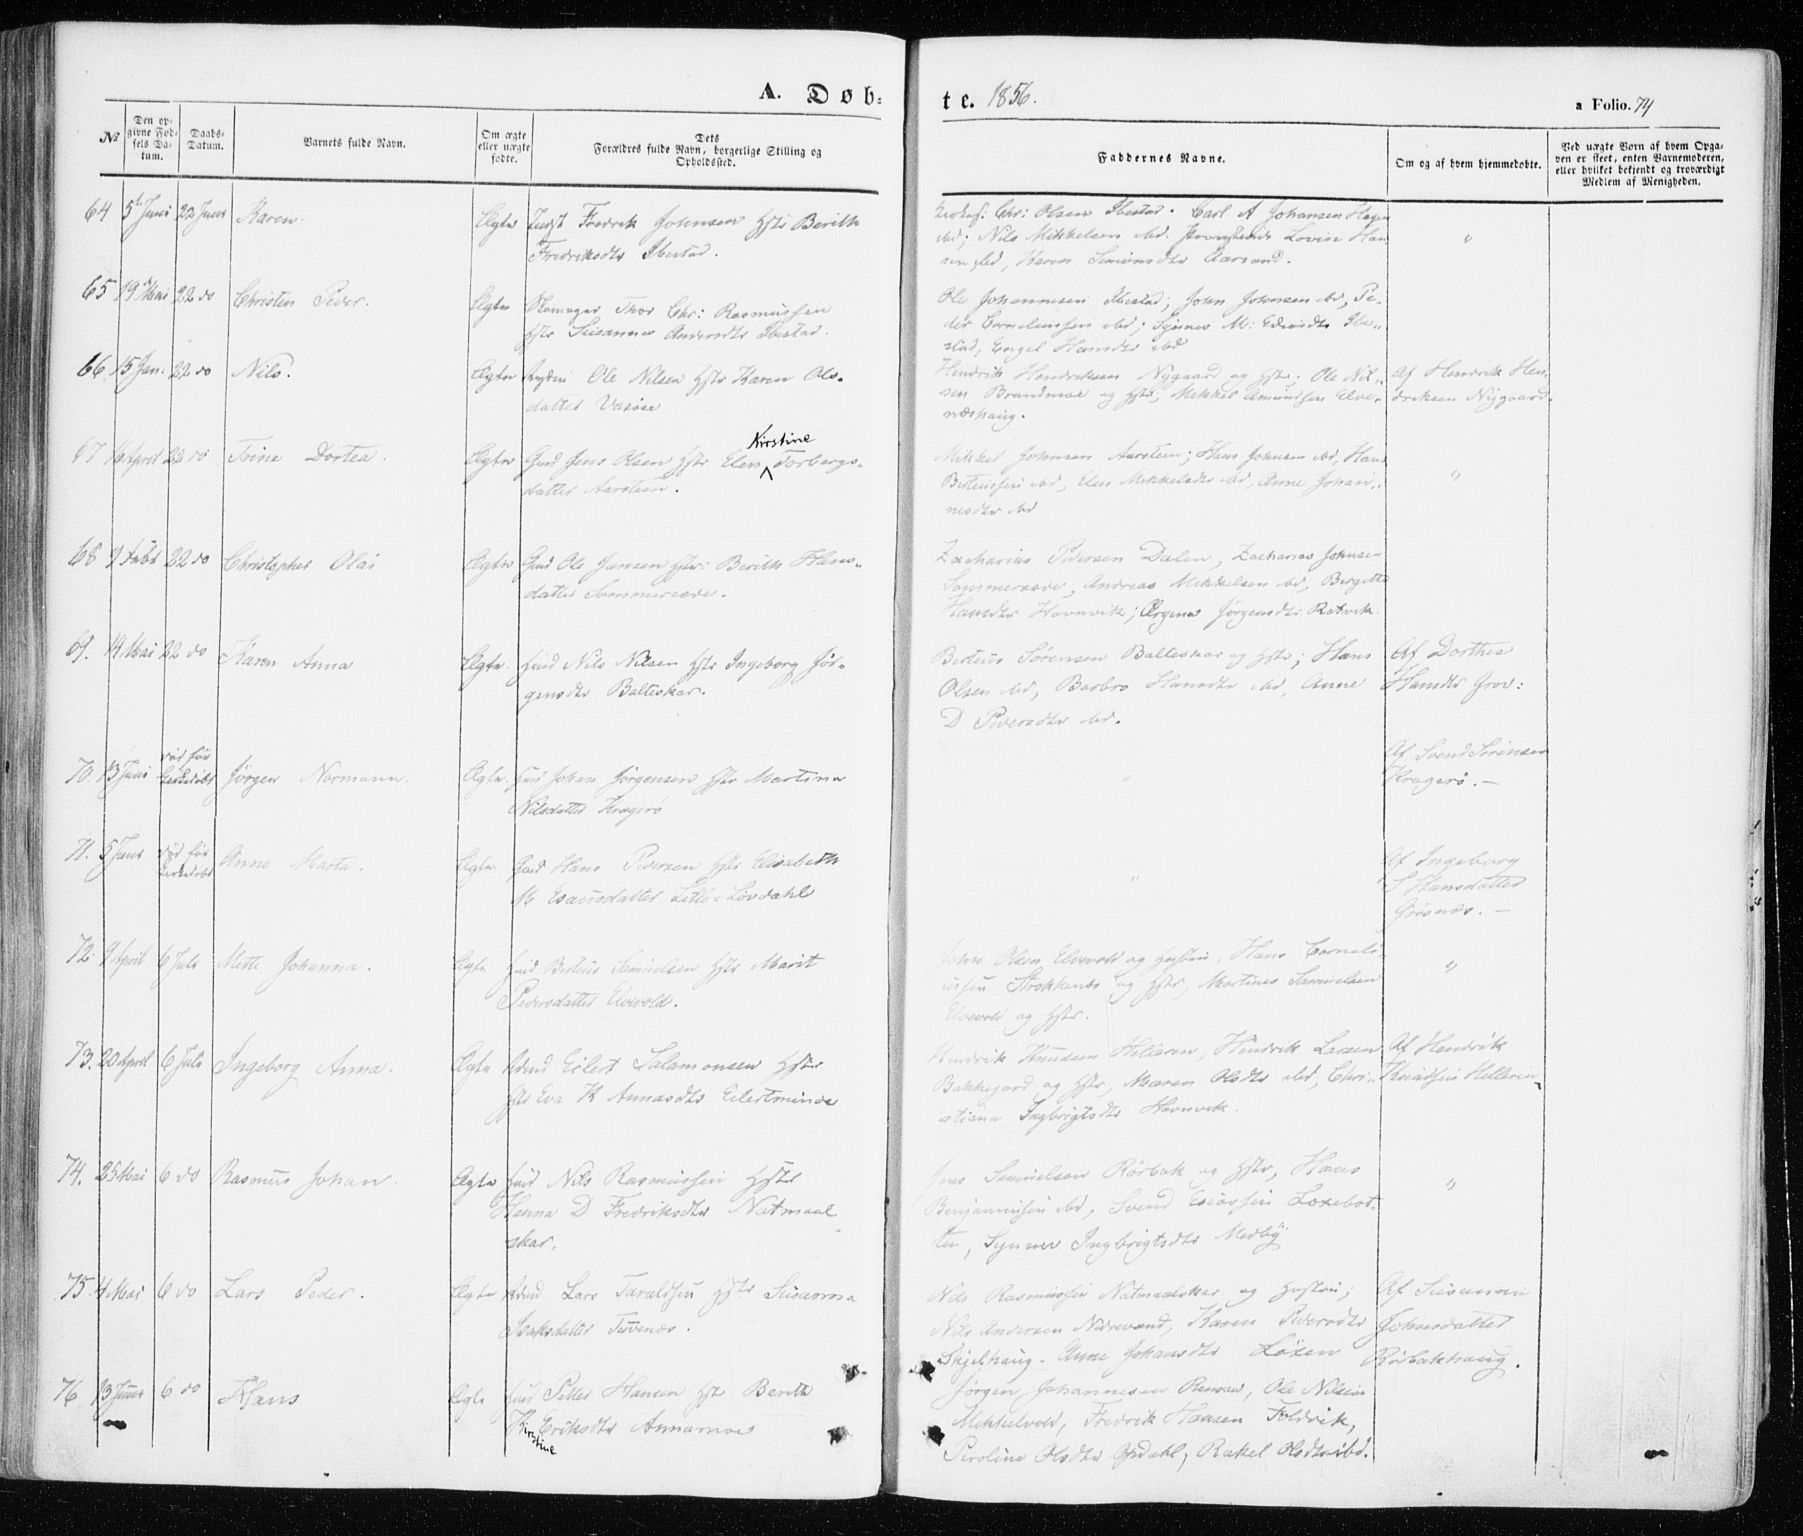 A. Døb-
te. 1856.
a Folio. 74
№
Den op-
givne Fød-
sels Da-
tum.
Daabs-
Datum.
Barnets fulde Navn.
Om ægte
eller uægte
fødte.
Dets
Forældres fulde Navn, borgerlige Stilling og
Opholdssted.
Faddernes Navne.
Om og af hvem hjemmedøbte.
Ved uægte Børn af hvem Opga-
ven er skeet, enten Barnemoderen,
eller hvilket bekjendt og troværdigt
Medlem af Menigheden.
64 5te Juni 22 Juni Karen. Ægte Fredrik Johnsen Hstr Berith
Fredriksdtr Ibestad.
Chr: Olsen Ibestad. Carl A Johansen Hagen
ibd; Nils Mikkelsen ibd. Lovise Han
sen ibd, Karen Simonsdtr Aarsand.
"
65 19 Mai 22 do Christen Peder. Ægte Skomager Thor Chr: Rasmussen
Hstr Susanna Andersdtr Ibestad.
Ole Johannesen Ibestad, John Johnsen ibd, Pe-
der Corneliussen ibd; Synner M: Ibe-
stad, Engel Hansdtr ibd
66. 15 Jan: 22 do Nils. Ægte Ole Nilsen Hstr Karen Ols-
datter Vasöse
Hendrik Hendriksen Nygaard og Hstr, Ole Nil-
sen Brandmoe og Hstr, Mikkel Amundsen Elve-
næshaug.
Af Hendrik Hen-
driksen Nygaard.
67 16 April 22 do Trine Dortea. Ægte Huus Jens Olsen Hstr Elen Kirstine Torbergs-
datter Aarsteen.
Mikkel Johnsen Aarsteen; Hans Johnsen ibd, Hans
Berteussen ibd, Elen Mikkelsdtr ibd, Anne Johan-
nesdtr ibd
"
68 9 Febr 22 do Christopher Olai Ægte Ole Jansen Hstr: Berith Hans-
datter Sommersæde.
Zacharias Pedersen Dalen, Zacharias Johnsen
Sommersæde, Andreas Mikkelsen ibd, Bergette
Hansdtr Havnvik; Jørgensdtr Rotvik.
69. 14 Mai 22 do Karen Anna Ægte. Huus Nils Nilsen Hstr Ingeborg Jør-
gensdtr Balteskar.
Berteus Sørensen Balteskar og Hstr; Hans
Olsen ibd, Barbro Hansdtr ibd, Anne
D Pedersdtr ibd.
Af Dorthea
Hansdtr Grov:
70. 13 Juni død før
Kirkedåb Jörgen Normann. Ægte. Huus Johan Jørgensen Hstr Martina
Nilsdatter Kragerö
"
Af Svend Sörensen
Kragerö. —
71. 5 Juni død før
Kirkedåb Anne Marta. Ægte. Huus Hans Pedersen Hstr Elisabeth
M Esaiusdatter Lille-Løvdahl
"
Af Ingeborg
S Hansdatter
Grøsnæs. —
72. 9 April 6 Juli Mette Johanna. Ægte Huus Berteus Samuelsen Hstr Marit
Pedersdatter Elvevold.
John Olsen Elvevold og Hustru, Hans Corneli-
ussen Strokkenæs og Hstr, Martinus Samuelsen
Elvevold og Hstr.
"
73. 20 April 6 Juli Ingeborg Anna. Ægte Eilert Salamonsen Hstr
Hstr Eva K Annasdtr
Hendrik Knudsen Helleren, Hindrik Larsen
Bakkejord og Hstr, Maren Olsdtr ibd, Chri-
stiane Ingbrigtsdtr Havnvik.
Af Hendrik
Knudsen Helleren.
74. 25 Mai 6 do Rasmus Johan. Ægte Huus Nils Rasmussen Hstr
Hanna D Fredriksdtr Natmaal
skar.
Jens Samuelsen Rörbak og Hstr, Hans
Benjaminsen ibd, Svend Esaiassen Loxebot-
ten, Synner Ingbrigtsdtr Medby
"
75. 4 Mai 6 do Lars Peder. Ægte Lars Taraldsen Hstr Susanna
Isaksdatter Tuvenæs.
Nils Rasmussen Natmaalskar og Hustru;
Nils Andersen Nedrevand, Karen Pedersdtr
Skjelhaug. Anne Johansdtr Löxen
Af Susanna
Johnsdatter
Rörbakhaug.
76 13 Juni 6 do Hans Ægte Huus Petter Hansen Hstr Berith
Kirstine Eriksdtr Annamoe
Jörgen Johannesen Renså, Ole Nilsen
Mikkelvold, Fredrik Hansen Foldvik,
Peroline Olsdtr Opdahl, Rakel Olsdtr ibd.